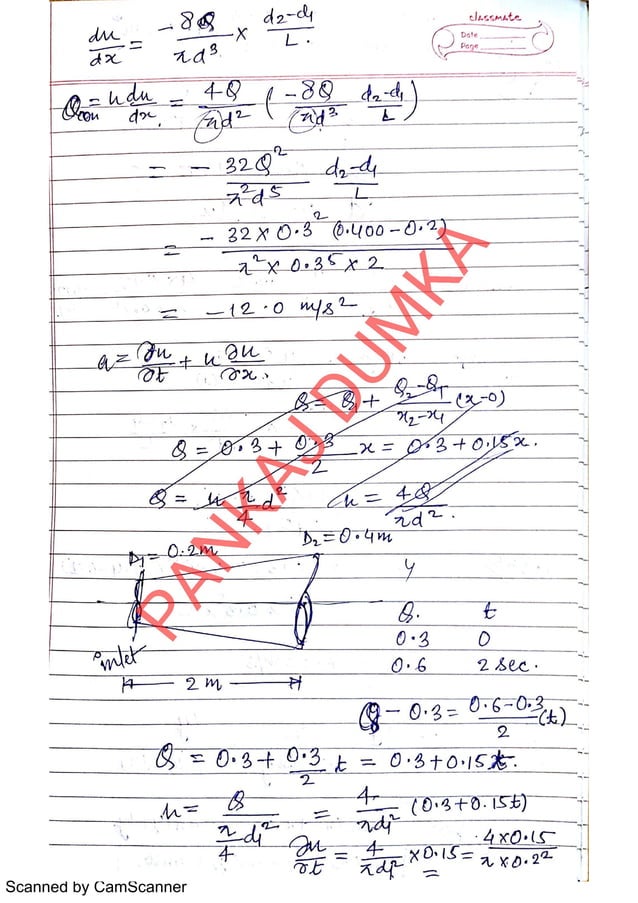 classmate
Date
Page
du/dx = -8Q/πd³ × d₂-d₁/L.
Q_con = u du/dx = 4Q/πd² (-8Q/πd³ d₂-d₁/L)
= - 32Q²/π²d⁵ d₂-d₁/L
= - 32×0.3² (0.400-0.2)/π²×0.3⁵×2
= -12.0 m/s²
a = ∂u/∂t + u ∂u/∂x.
Q = Q₁ + Q₂-Q₁/x₂-x₁ (x-0)
Q = 0.3 + 0.3/2 x = 0.3+0.15x.
Q = u π/4 d² u = 4Q/πd².
D₁=0.2m D₂=0.4m
Q. t
0.3 0
inlet 0.6 2 sec.
2m
Q - 0.3 = 0.6-0.3/2 (t)
Q = 0.3+ 0.3/2 t = 0.3+0.15t.
u = Q/π/4 d₁² = 4/πd₁² (0.3+0.15t)
∂u/∂t = 4/πd₁² ×0.15 = 4×0.15/π×0.2²
PANKAJ DUMKA
Scanned by CamScanner